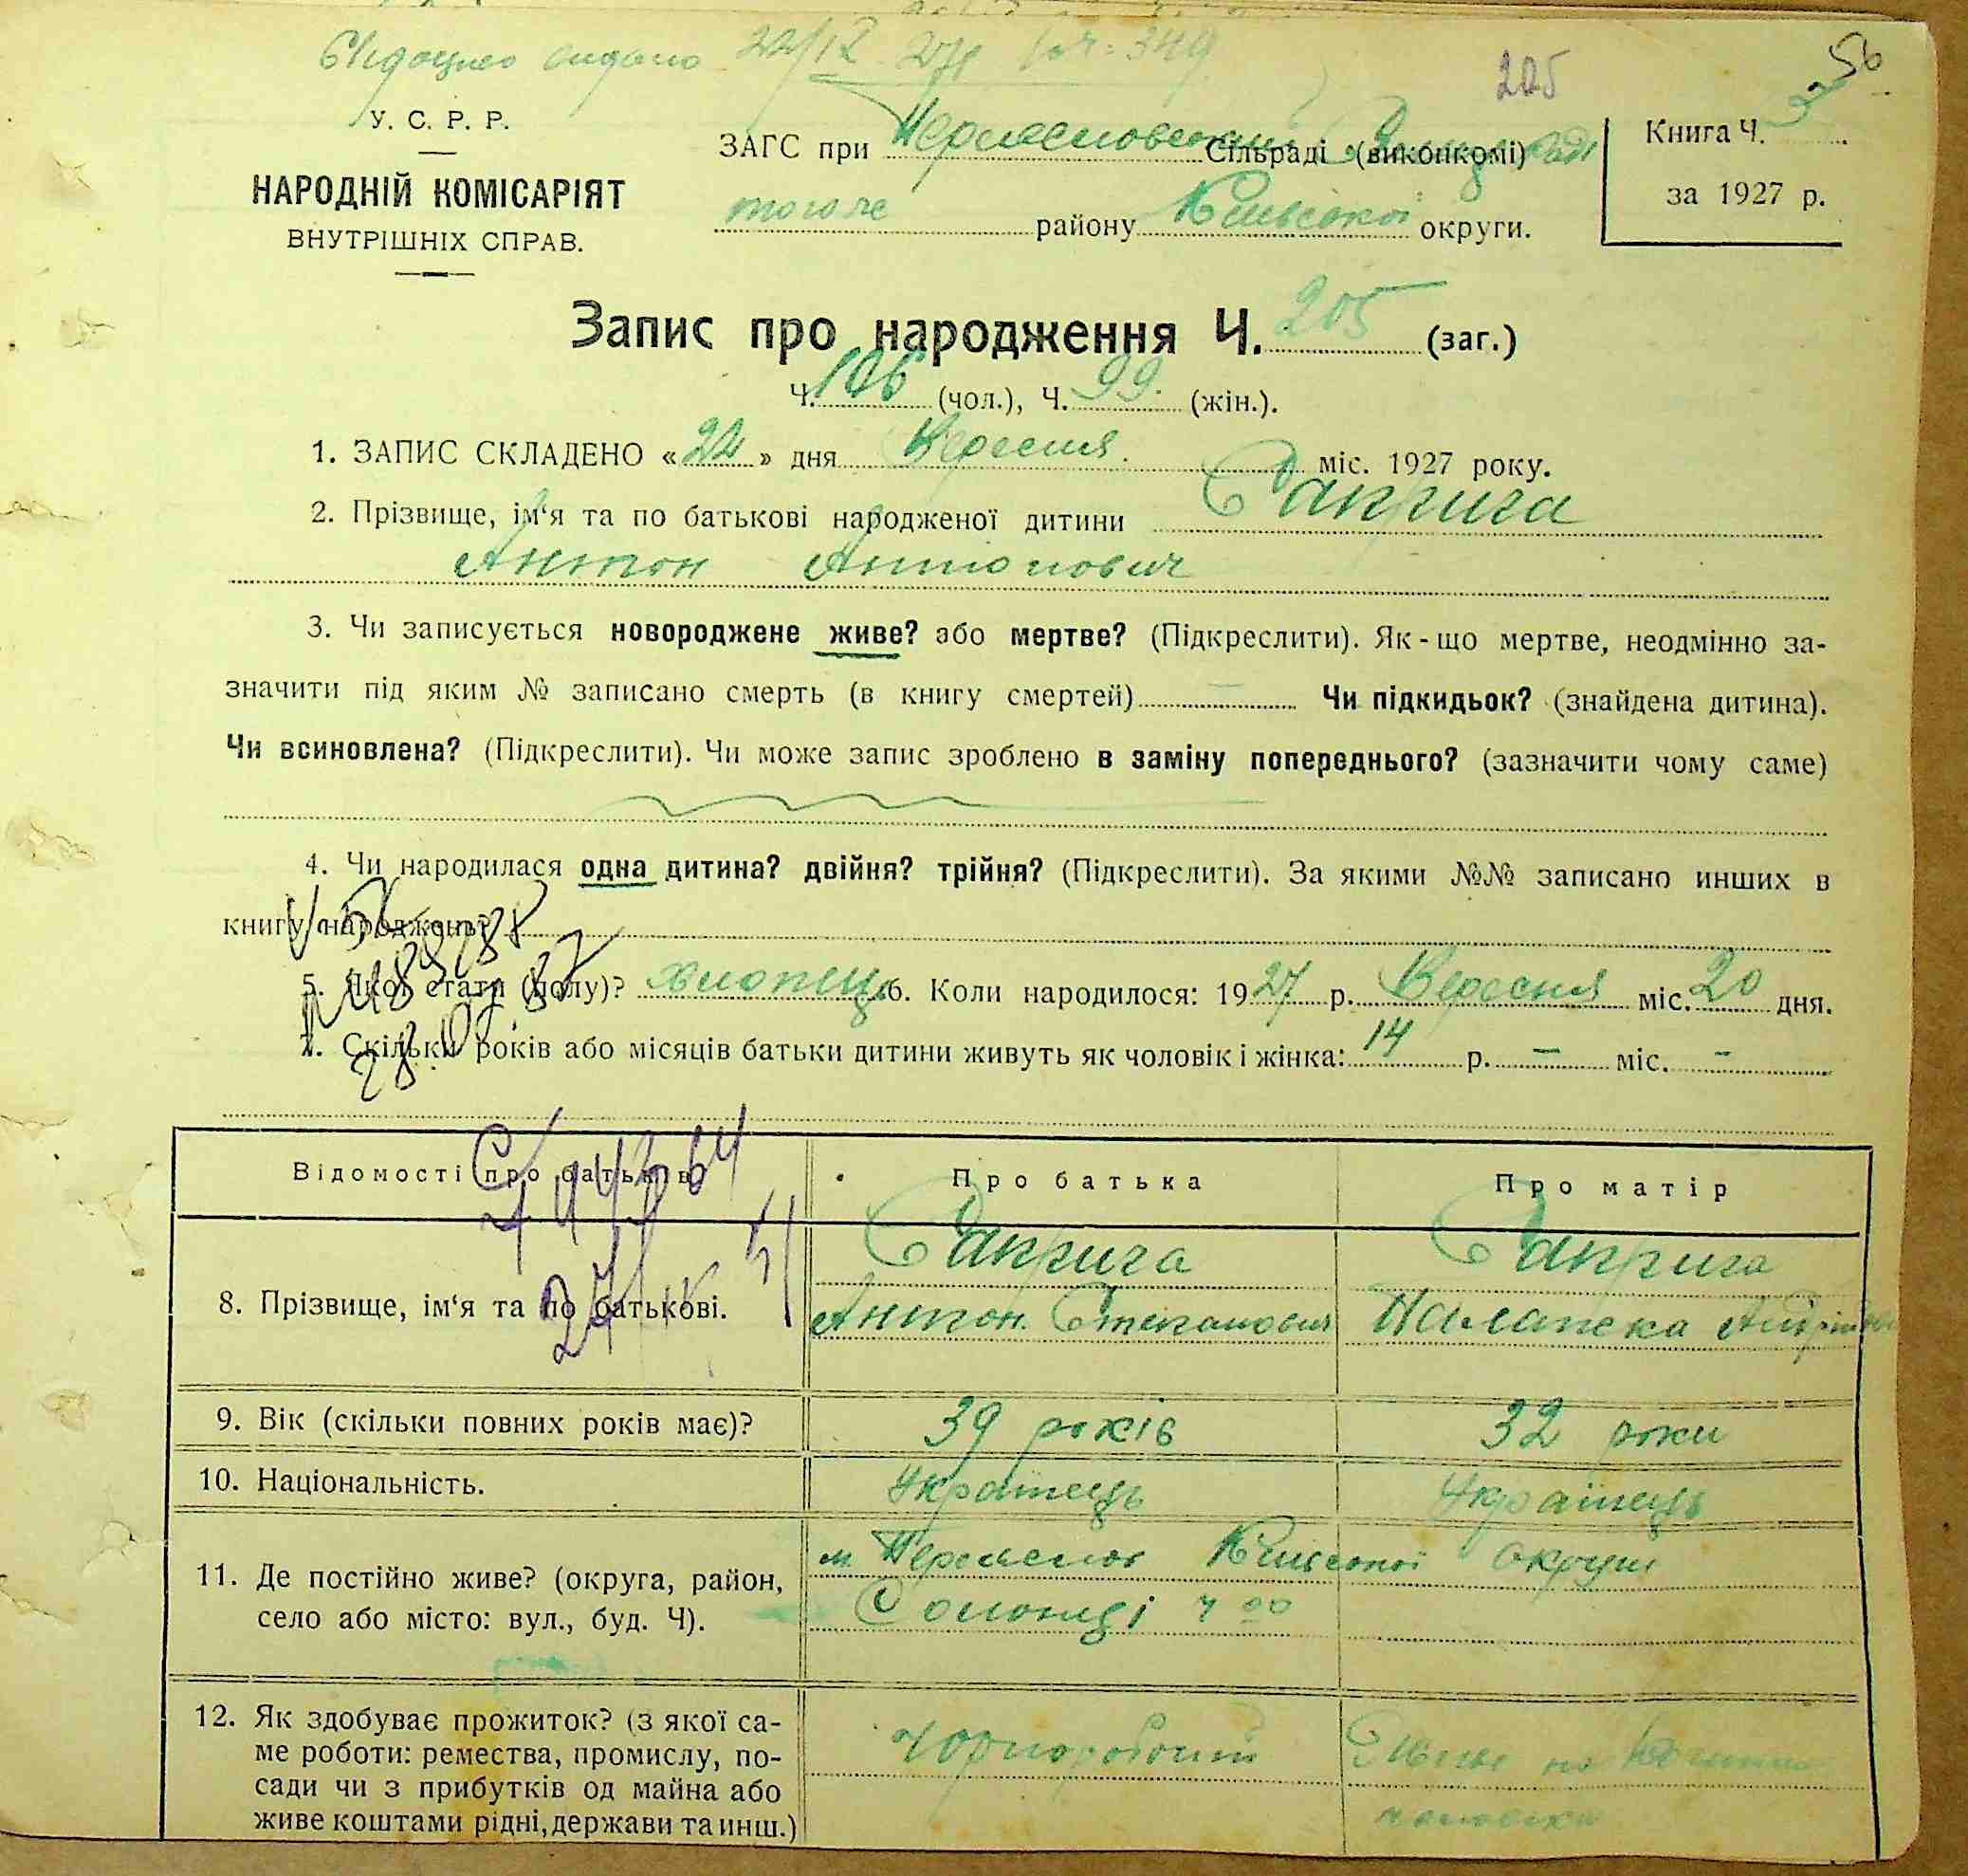 Свідоцтво видано 22/12 27р. Ч: 349
205
56
У. С. Р. Р.
НАРОДНІЙ КОМІСАРІЯТ
ВНУТРІШНІХ СПРАВ.
ЗАГС при Сільраді (виконкомі)
того ж району Київської округи.
Книга Ч.
за 1927 р.
Запис про народження Ч. 205 (заг.)
Ч. 106 (чол.), Ч. 99. (жін.).
1. ЗАПИС СКЛАДЕНО «22» дня Вересня. міс. 1927 року.
2. Прізвище, ім‘я та по батькові народженої дитини
Антон Антонович
3. Чи записується новороджене живе? або мертве? (Підкреслити). Як-що мертве, неодмінно за-
значити під яким № записано смерть (в книгу смертей) Чи підкидьок? (знайдена дитина).
Чи всиновлена? (Підкреслити). Чи може запис зроблено в заміну попереднього? (зазначити чому саме)
4. Чи народилася одна дитина? двійня? трійня? (Підкреслити). За якими №№ записано инших в
книгу народжень?
5. Якої стати (полу)? хлопець 6. Коли народилося: 1927 р. Вересня міс. 20 дня.
7. Скільки років або місяців батьки дитини живуть як чоловік і жінка: 14 р. – міс. –
Відомості про батьків Про батька Про матір
8. Прізвище, ім‘я та по батькові.
Антон Степанович
9. Вік (скільки повних років має)? 39 років 32 роки
10. Національність. Українець Українець
11. Де постійно живе? (округа, район, м. Переяслов Київської округи
село або місто: вул., буд. Ч). Солонці
12. Як здобуває прожиток? (з якої са-
ме роботи: ремества, промислу, по- Чорноробочий
сади чи з прибутків од майна або
живе коштами рідні, держави та инш.) чоловіка